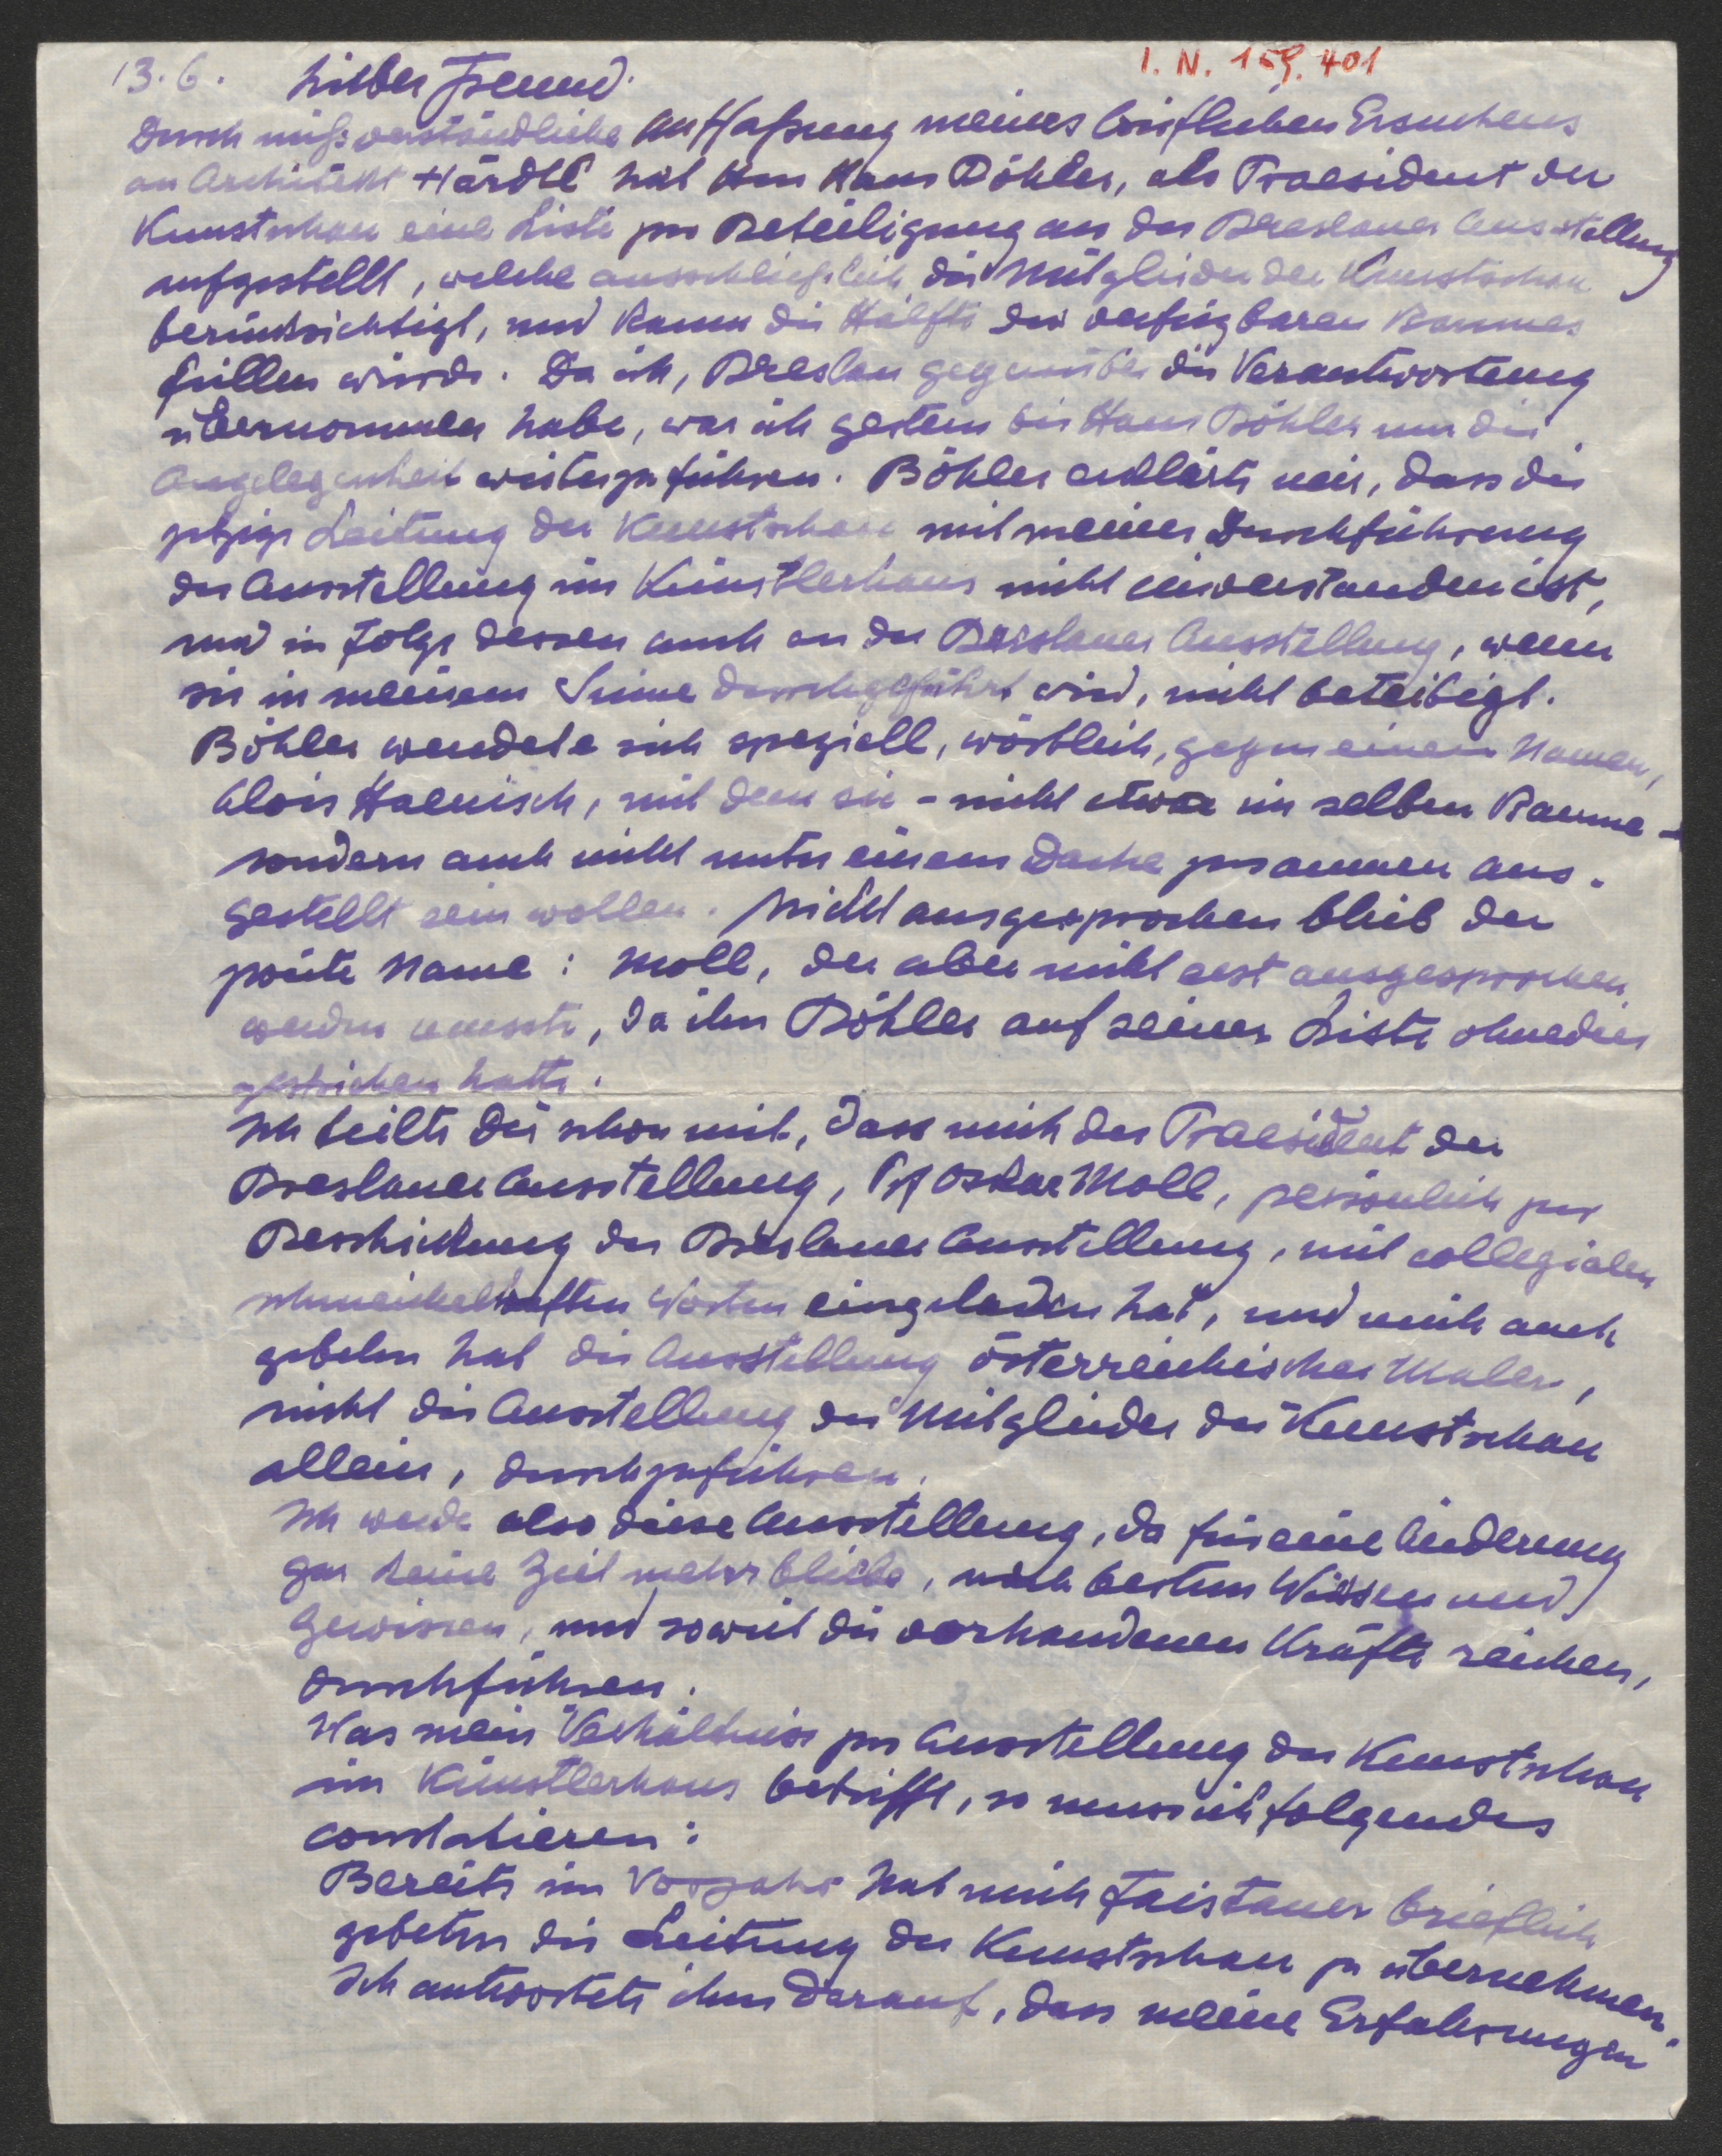 13.6. Lieber Freund. I. N. 159.401
Durch mißverständliche Auffaßung meines brieflichen Ersuchens
an Architekt Härdtl hat Hans Böhler, als Praesident der
Kunstschau eine Liste zur Beteiligung an der Breslauer Ausstellung
aufgestellt, welche ausschließlich die Mitglieder der Kunstschau
berücksichtigt, und kaum die Hälfte des verfügbaren Raumes
füllen würde. Da ich, Breslau gegenüber die Verantwortung
übernommen habe, war ich gestern bei Hans Böhler um die
Angelegenheit weiterzuführen. Böhler erklärte mir, dass die
jetzige Leitung der Kunstschau mit meiner Durchführung
der Ausstellung im Künstlerhaus nicht einverstanden ist,
und in Folge dessen auch an der Breslauer Ausstellung, wenn
sie in meinem Sinne durchgeführt wird, nicht beteiligt.
Böhler wendete sich speziell, wörtlich, gegen einen Namen,
Alois Haenisch, mit dem sie - nicht etwa im selben Raume -
sondern auch nicht unter einem Dache zusammen aus-
gestellt sein wollen. Nicht ausgesprochen blieb der
zweite Name: Moll, der aber nicht erst ausgesprochen
werden musste, da ihn Böhler auf seiner Liste ohnedies
gestrichen hatte.
Ich teilte Dir schon mit, dass mich der Praesident der
Breslauer Ausstellung, Prf Oskar Moll, persönlich zur
Beschickung der Breslauer Ausstellung, mit collegialen
schmeichelhaften Worten eingeladen hat, und mich auch
gebeten hat die Ausstellung österreichischer Maler,
nicht die Ausstellung der Mitglieder der Kunstschau
allein, durchzuführen.
Ich werde also diese Ausstellung, da für eine Änderung
gar keine Zeit mehr bliebe, nach bestem Wissen und
Gewissen, und soweit die vorhandenen Kräfte reichen,
durchführen.
Was mein Verhältniss zur Ausstellung der Kunstschau
im Künstlerhaus betrifft, so muss ich folgendes
constatieren:
Bereits im Vorjahr hat mich Faistauer brieflich
gebeten die Leitung der Kunstschau zu übernehmen.
Ich antwortete ihm darauf, dass meine Erfahrungen